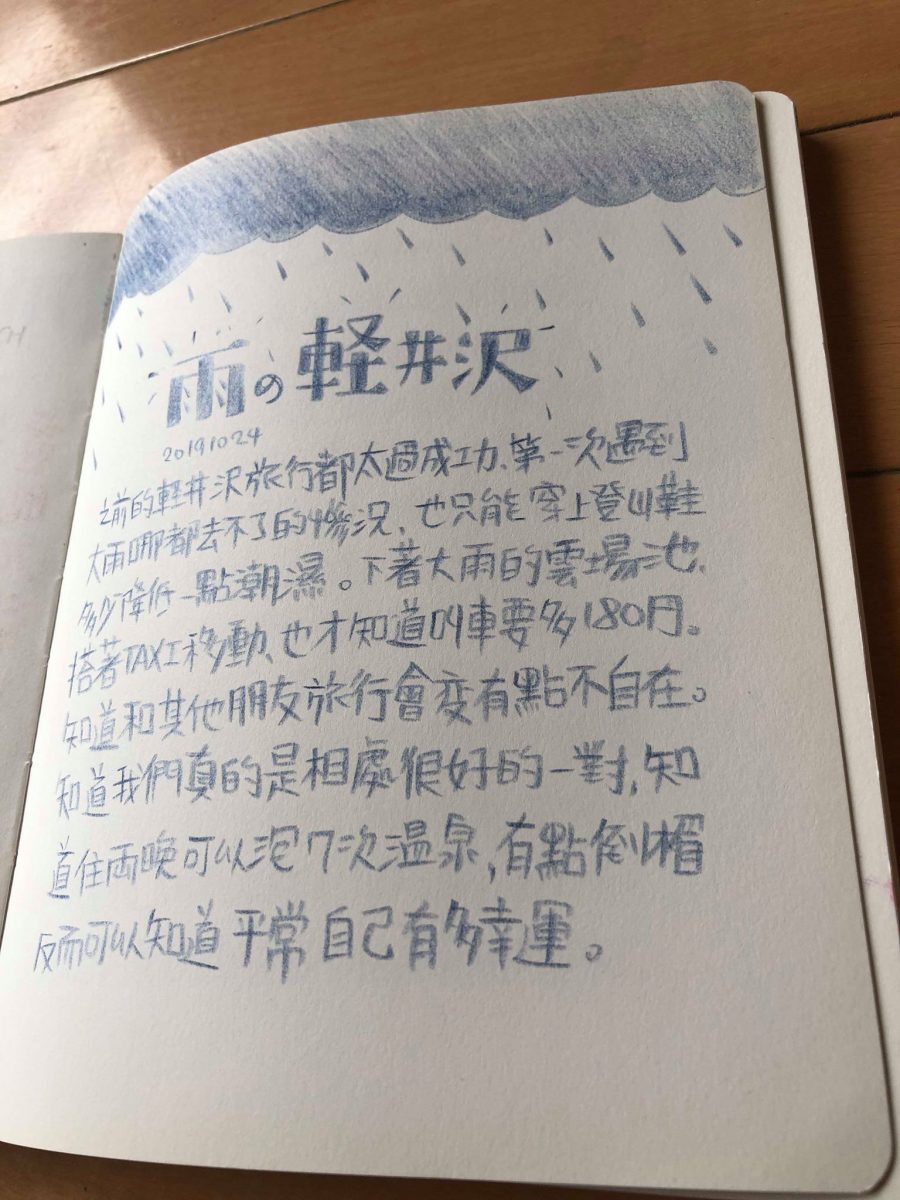 雨の軽井沢
20191024
之前的軽井沢旅行都太過成功、第一次遇到
大雨哪都去不了的慘況、也只能穿上登山鞋
多少降低一點潮濕。下著大雨的雲場池、
搭著TAXI移動、也才知道叫車要多180円。
知道和其他朋友旅行會变有點不自在。
知道我們真的是相處很好的一對,知
道住両晚可以泡7次温泉,有點倒楣
反而可以知道平常自己有多幸運。